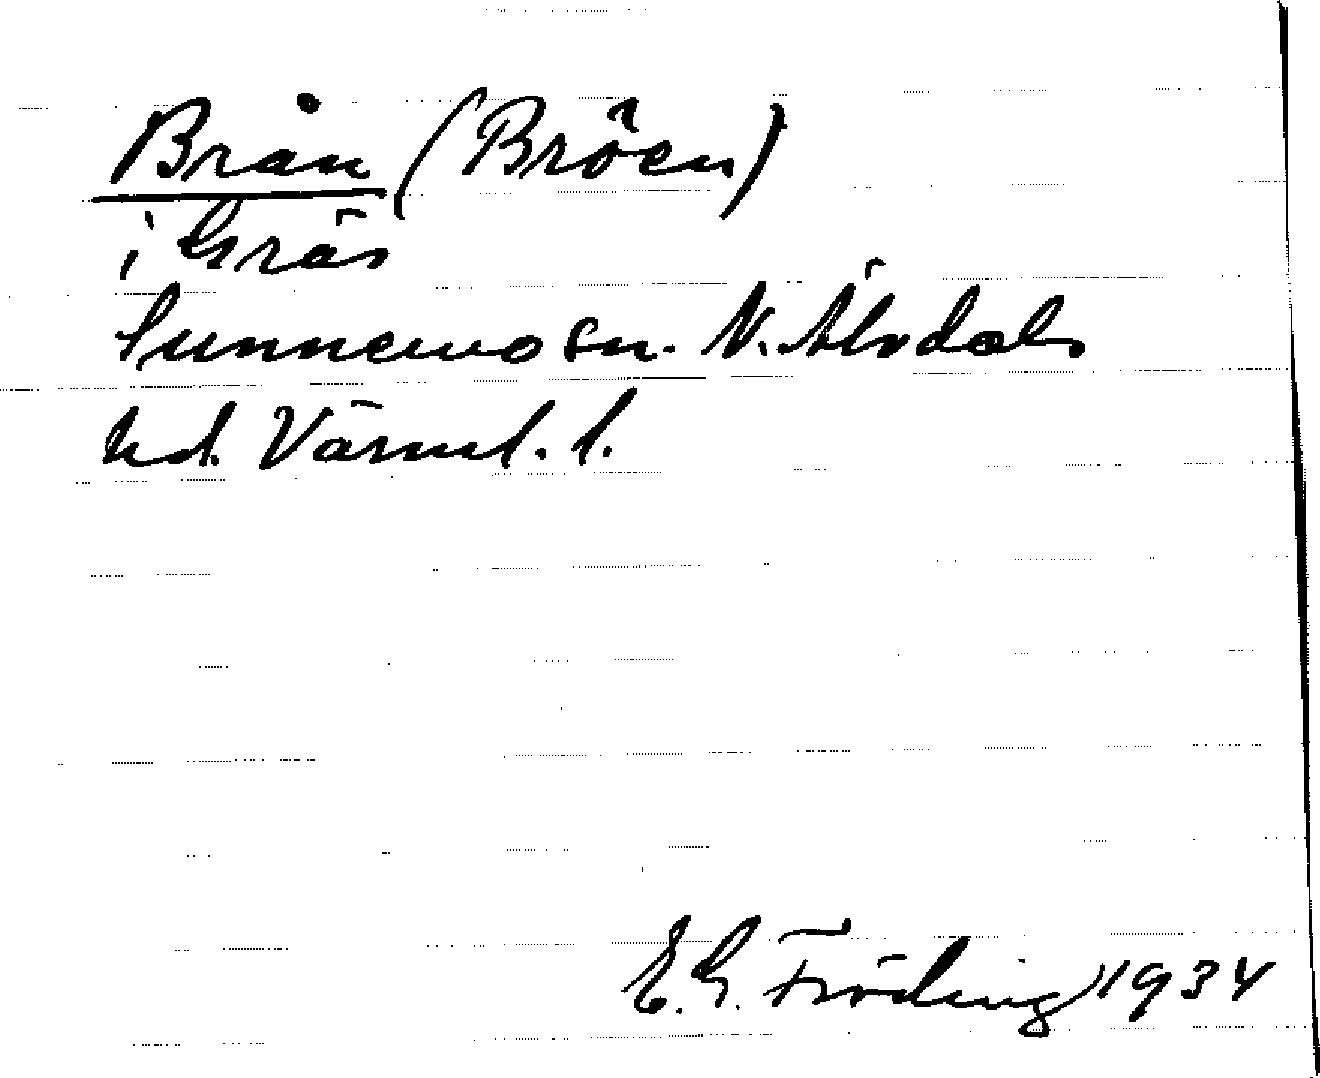 Brån (Bröen)
i Gräs
Sunnemo sn. N. Älvdals
hd. Värml. l.
E. G. Fröding 1934